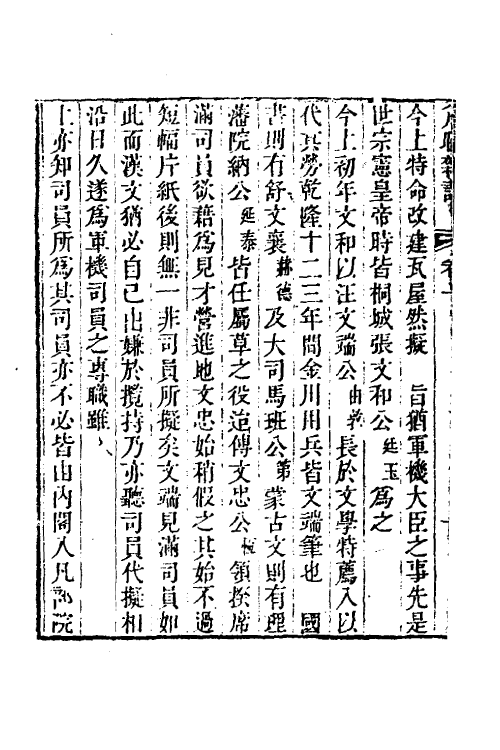 今上特命改建瓦屋然擬　旨猶軍機大臣之事先是
世宗憲皇帝時皆桐城張文和公廷玉為之
今上初年文和以汪文端公由敦長於文學特薦入以
代其勞乾隆十二三年間金川用兵皆文端筆也　國
書則有舒文襄赫德及大司馬班公第蒙古文則有理
藩院納公延泰皆任屬草之役迨傅文忠公恆領揆席
滿司員欲藉為見才營進地文忠始稍假之其始不過
短幅片紙後則無一非司員所擬矣文端見滿司員如
此而漢文猶必自己出嫌於攬持乃亦聽司員代擬相
沿日久遂為軍機司員之專職雖
上亦知司員所為其司員亦不必皆由內閣入凡部院